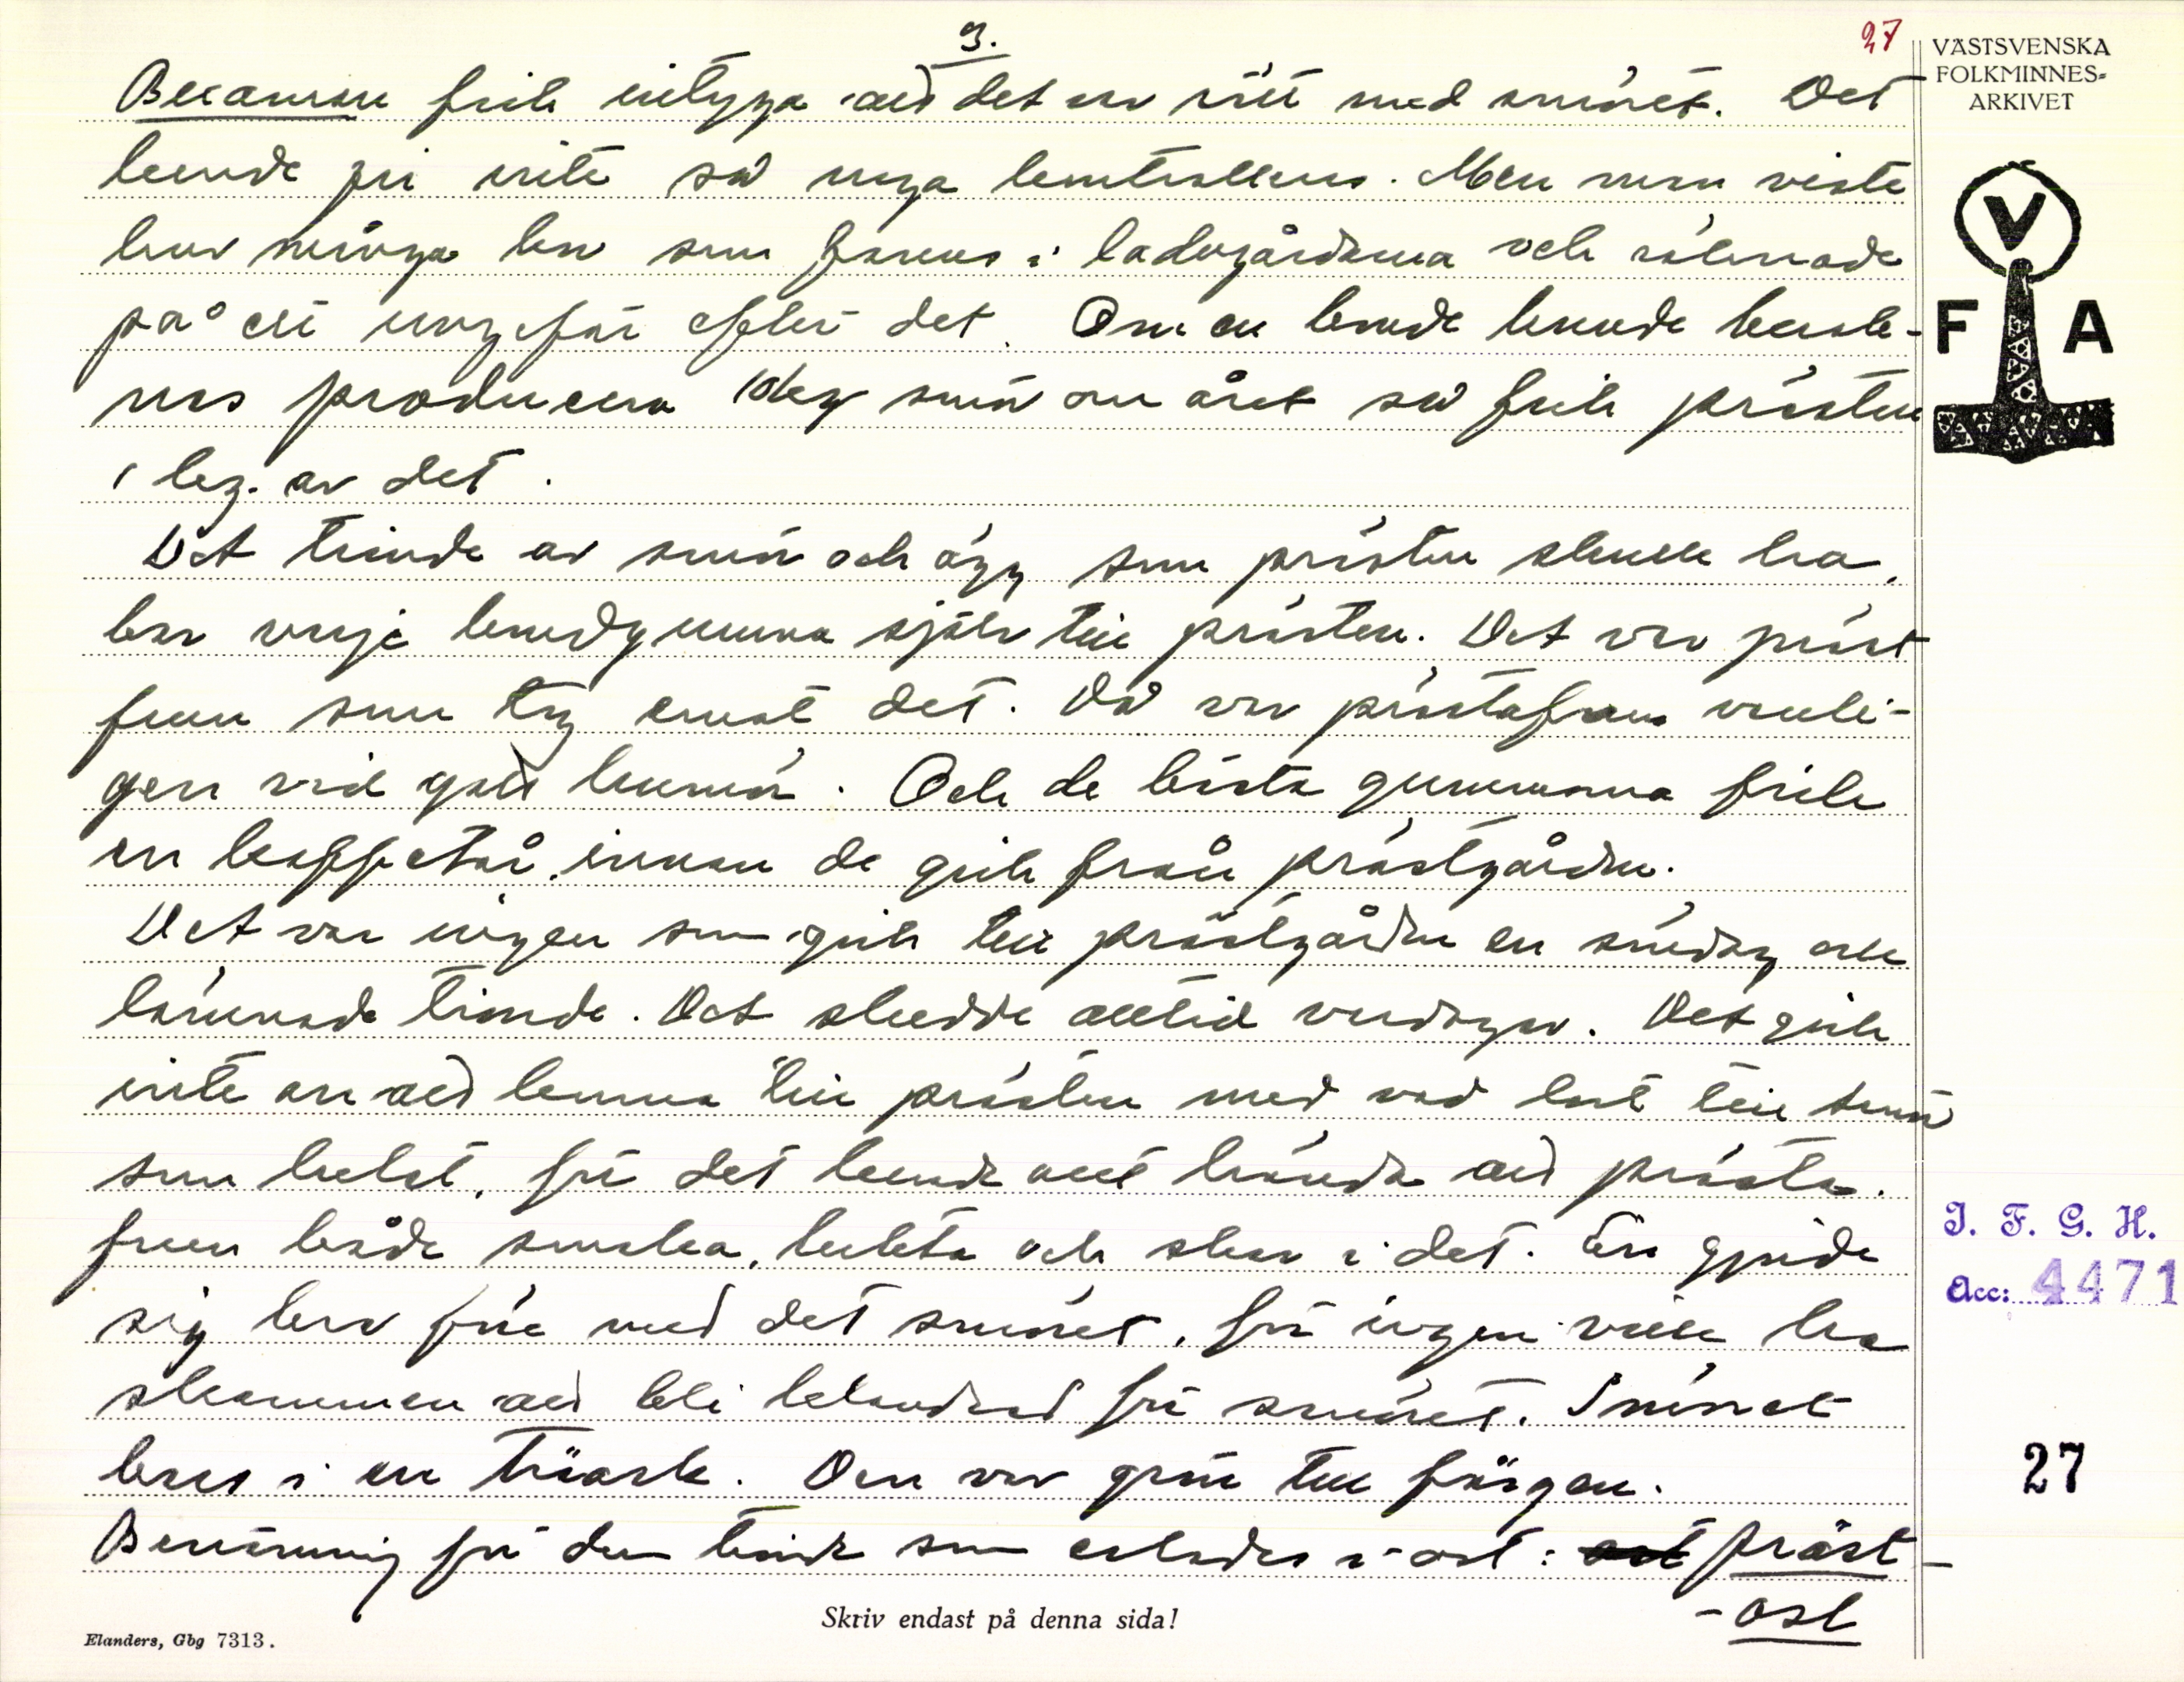 3.
27
VÄSTSVENSKA
FOLKMINNES-
ARKIVET
V
F A
fick intyga att det var rätt med smöret. Det
kunde ju inte så noga kontrolleras. Men man viste
hur många kor som fanns i ladugårdarna och räknade
på ett ungefär efter det. Om en bonde kunde beräk-
nas producera 10 kg smör om året så fick prästen
1 kg. av det.
Det tionde av smör och ägg som prästen skulle ha,
bar varje bondgumma själv till prästen. Det var präst
frun som tog emot det. Då var prästafrun vanli-
gen vid gott humör. Och de bästa gummorna fick
en kaffetår innan de gick från prästgården.
Det var ingen som gick till prästgården en söndag och
lämnade tionde. Det skedde alltid vardagar. Det gick
inte an att komma till prästen med vad lort till smör
som helst, för det kunde allt hända att prästa-
frun både smaka, lukta och skar i det. En gjorde
sig besvär med det smöret, för ingen ville ha
skammen att bli klandrad för smöret. Smöret
bars i en träask. Den var grön till färgen.
Benämning för den tionde som erlades i ost: präst-
-ost
I. F. G. H.
Acc: 4471
27
Skriv endast på denna sida!
Elanders, Gbg 7313.